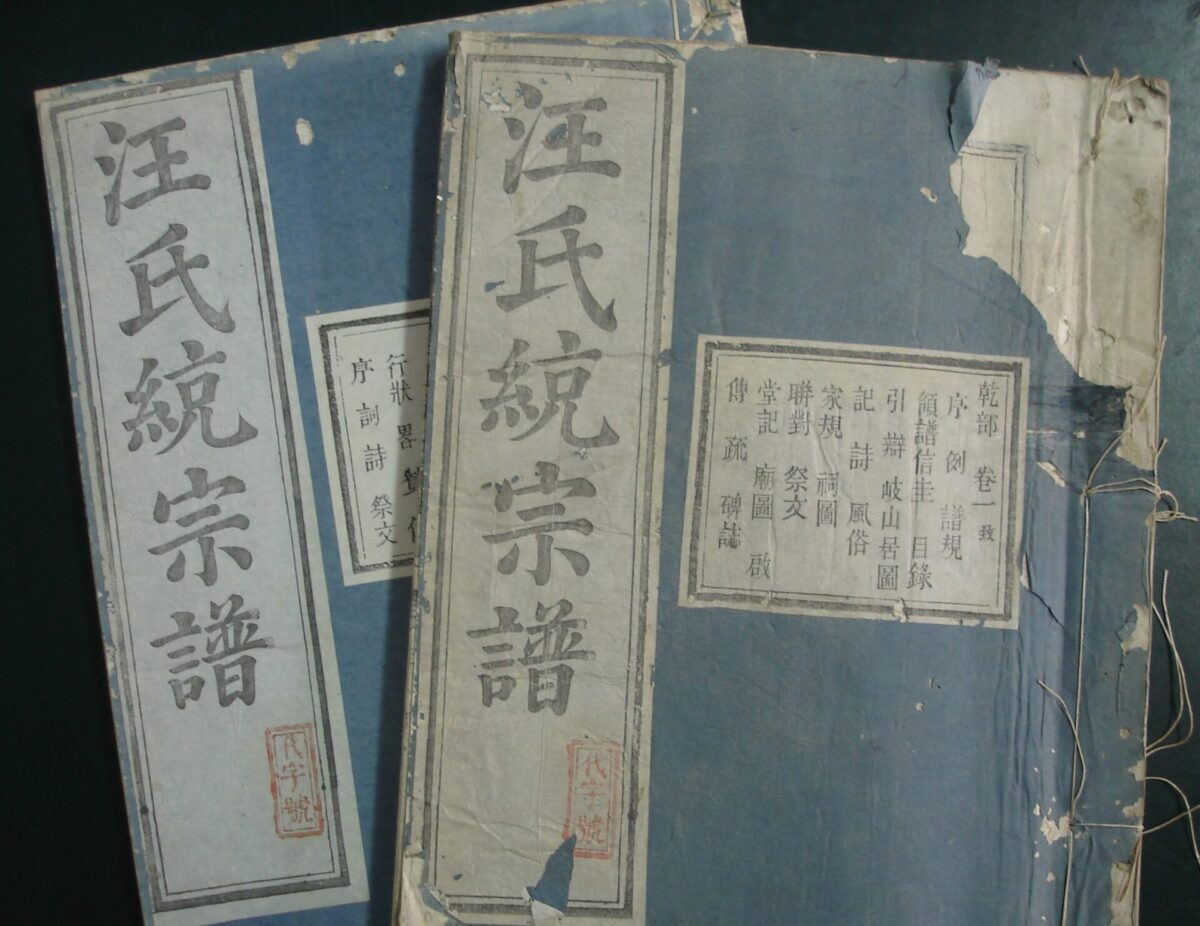 汪氏統宗譜
代字號
乾部 卷一 致
序 例 譜規
領譜信圭 目錄
引 辯 岐山居圖
記 詩 風俗
家規 祠圖
聯對 祭文
堂記 廟圖 啟
傳 疏 碑誌
汪氏統宗譜
代字號
行狀 畧 贊
序 詞 詩 祭文